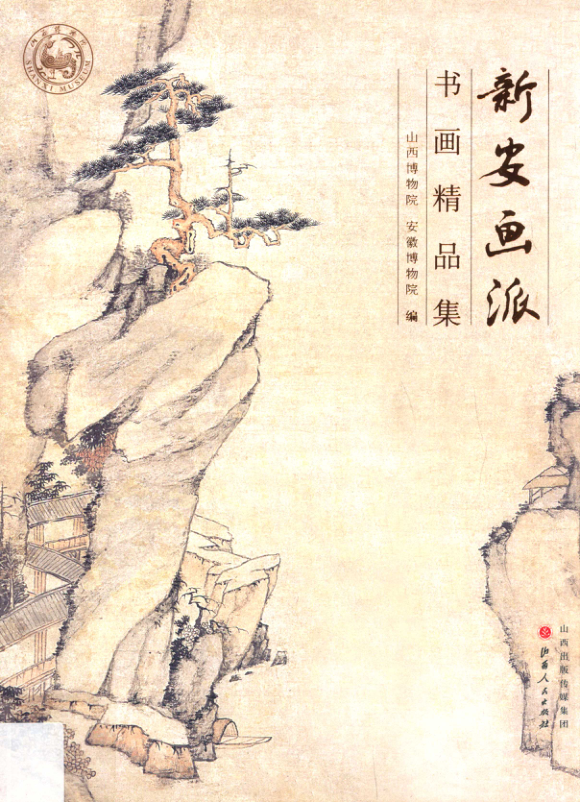 新安画派
书画精品集
山西博物院 安徽博物院 编
山西博物院
SHANXI MUSEUM
山西出版传媒集团
山西人民出版社